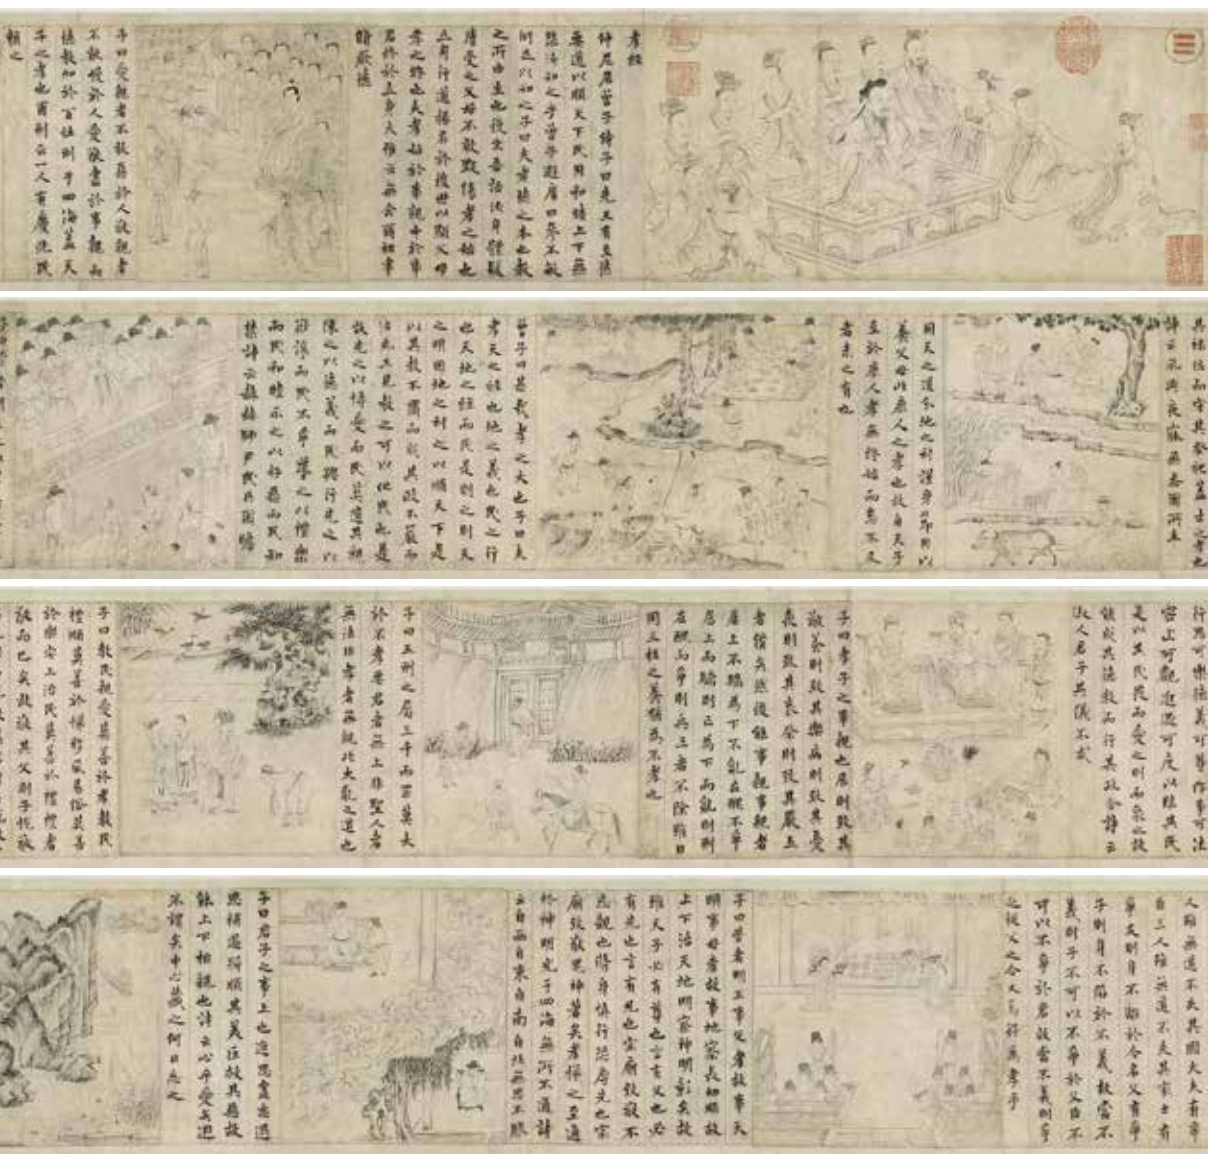 孝經
仲尼居曾子侍子曰先王有至德
要道以順天下民用和睦上下無
怨汝知之乎曾子避席曰參不敏
何足以知之子曰夫孝德之本也教
之所由生也復坐吾語汝身體髮
膚受之父母不敢毀傷孝之始也
立身行道揚名於後世以顯父母
孝之終也夫孝始於事親中於事
君終於立身大雅云無念爾祖聿
脩厥德
子曰愛親者不敢惡於人敬親者
不敢慢於人愛敬盡於事親而
德教加於百姓刑于四海蓋天
子之孝也甫刑云一人有慶兆民
賴之
其祿位而守其祭祀蓋士之孝也
詩云夙興夜寐無忝爾所生
用天之道分地之利謹身節用以
養父母此庶人之孝也故自天子
至於庶人孝無終始而患不及
者未之有也
曾子曰甚哉孝之大也子曰夫
孝天之經也地之義也民之行
也天地之經而民是則之則天
之明因地之利之以順天下是
以其教不肅而成其政不嚴而
治先王見教之可以化民也是
故先之以博愛而民莫遺其親
陳之以德義而民興行先之以
敬讓而民不爭導之以禮樂
而民和睦示之以好惡而民知
禁詩云赫赫師尹民具爾瞻
行思可樂德義可尊作事可法
容止可觀進退可度以臨其民
是以其民畏而愛之則而象之故
能成其德教而行其政令詩云
淑人君子其儀不忒
子曰孝子之事親也居則致其
敬養則致其樂病則致其憂
喪則致其哀祭則致其嚴五
者備矣然後能事親事親者
居上不驕為下不亂在醜不爭
居上而驕則亡為下而亂則刑
在醜而爭則兵三者不除雖日
用三牲之養猶為不孝也
子曰五刑之屬三千而罪莫大
於不孝要君者無上非聖人者
無法非孝者無親此大亂之道也
子曰教民親愛莫善於孝教民
禮順莫善於悌移風易俗莫善
於樂安上治民莫善於禮禮者
敬而已矣故敬其父則子悅敬
人雖無道不失其國大夫有爭
臣三人雖無道不失其家士有
爭友則身不離於令名父有爭
子則身不陷於不義故當不
義則子不可以不爭於父臣不
可以不爭於君故當不義則爭
之從父之令又焉得為孝乎
子曰昔者明王事父孝故事天
明事母孝故事地察長幼順故
上下治天地明察神明彰矣故
雖天子必有尊也言有父也必
有先也言有兄也宗廟致敬不
忘親也脩身慎行恐辱先也宗
廟致敬鬼神著矣孝悌之至通
於神明光于四海無所不通詩
云自西自東自南自北無思不服
子曰君子之事上也進思盡忠退
思補過將順其美匡救其惡故
能上下相親也詩云心乎愛矣遐
不謂矣中心藏之何日忘之